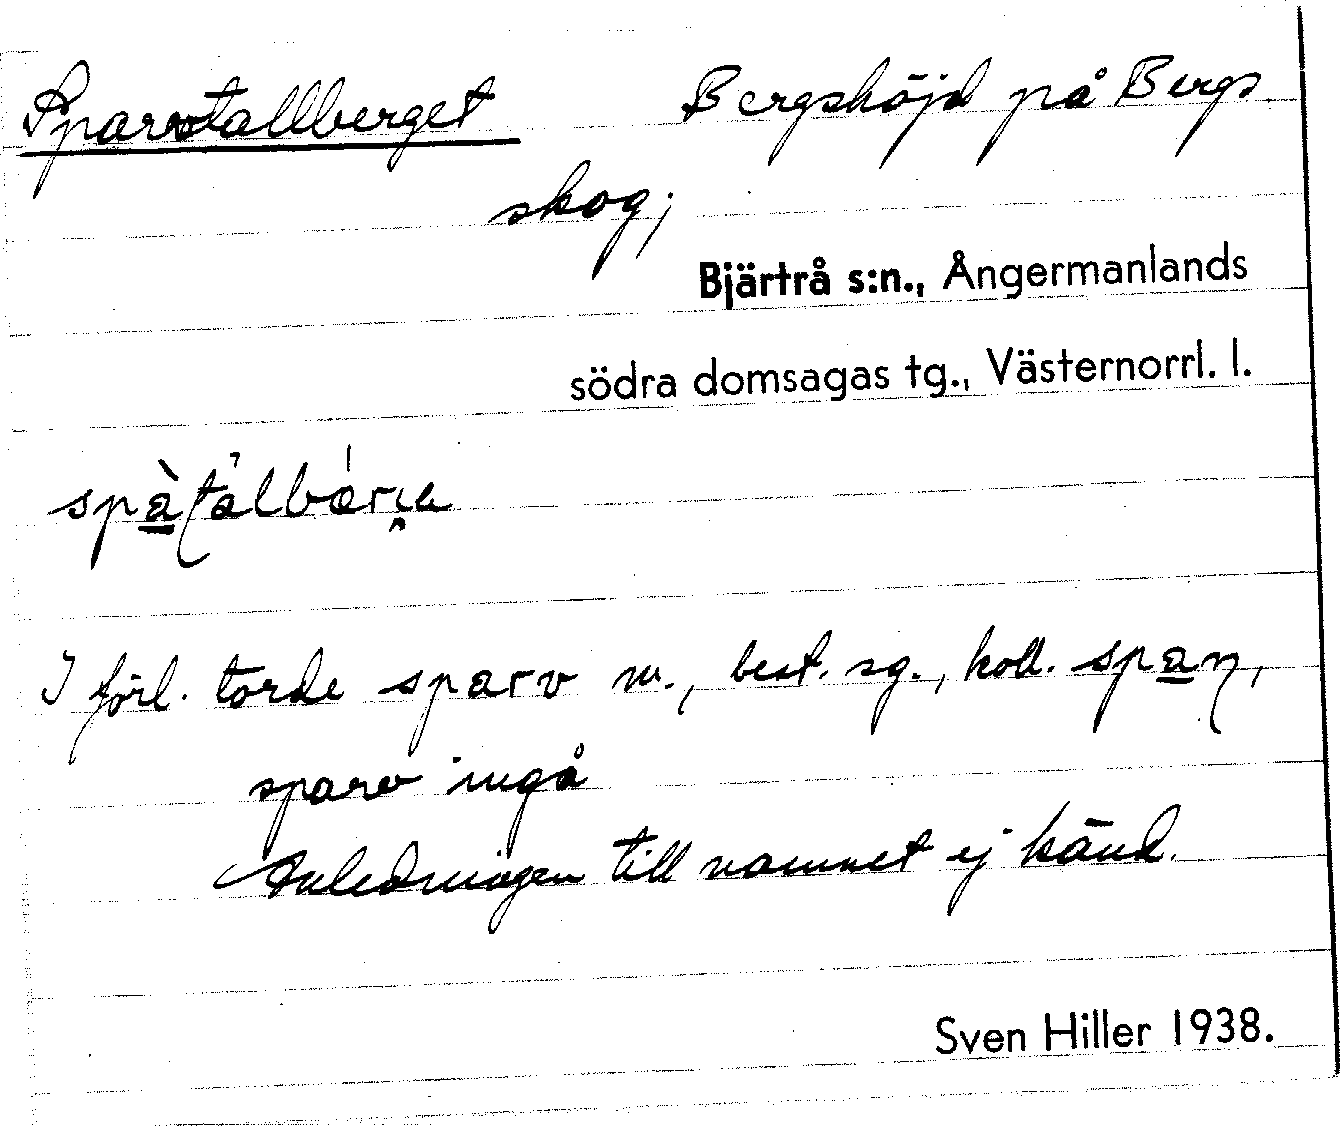 Sparvtallberget Bergshöjd på Bergs
skog;
Bjärtrå s:n., Ångermanlands
södra domsagas tg., Västernorrl. l.
I förl. torde sparv m., best. sg., koll. span,
sparv ingå
Anledningen till namnet ej känd.
Sven Hiller 1938.